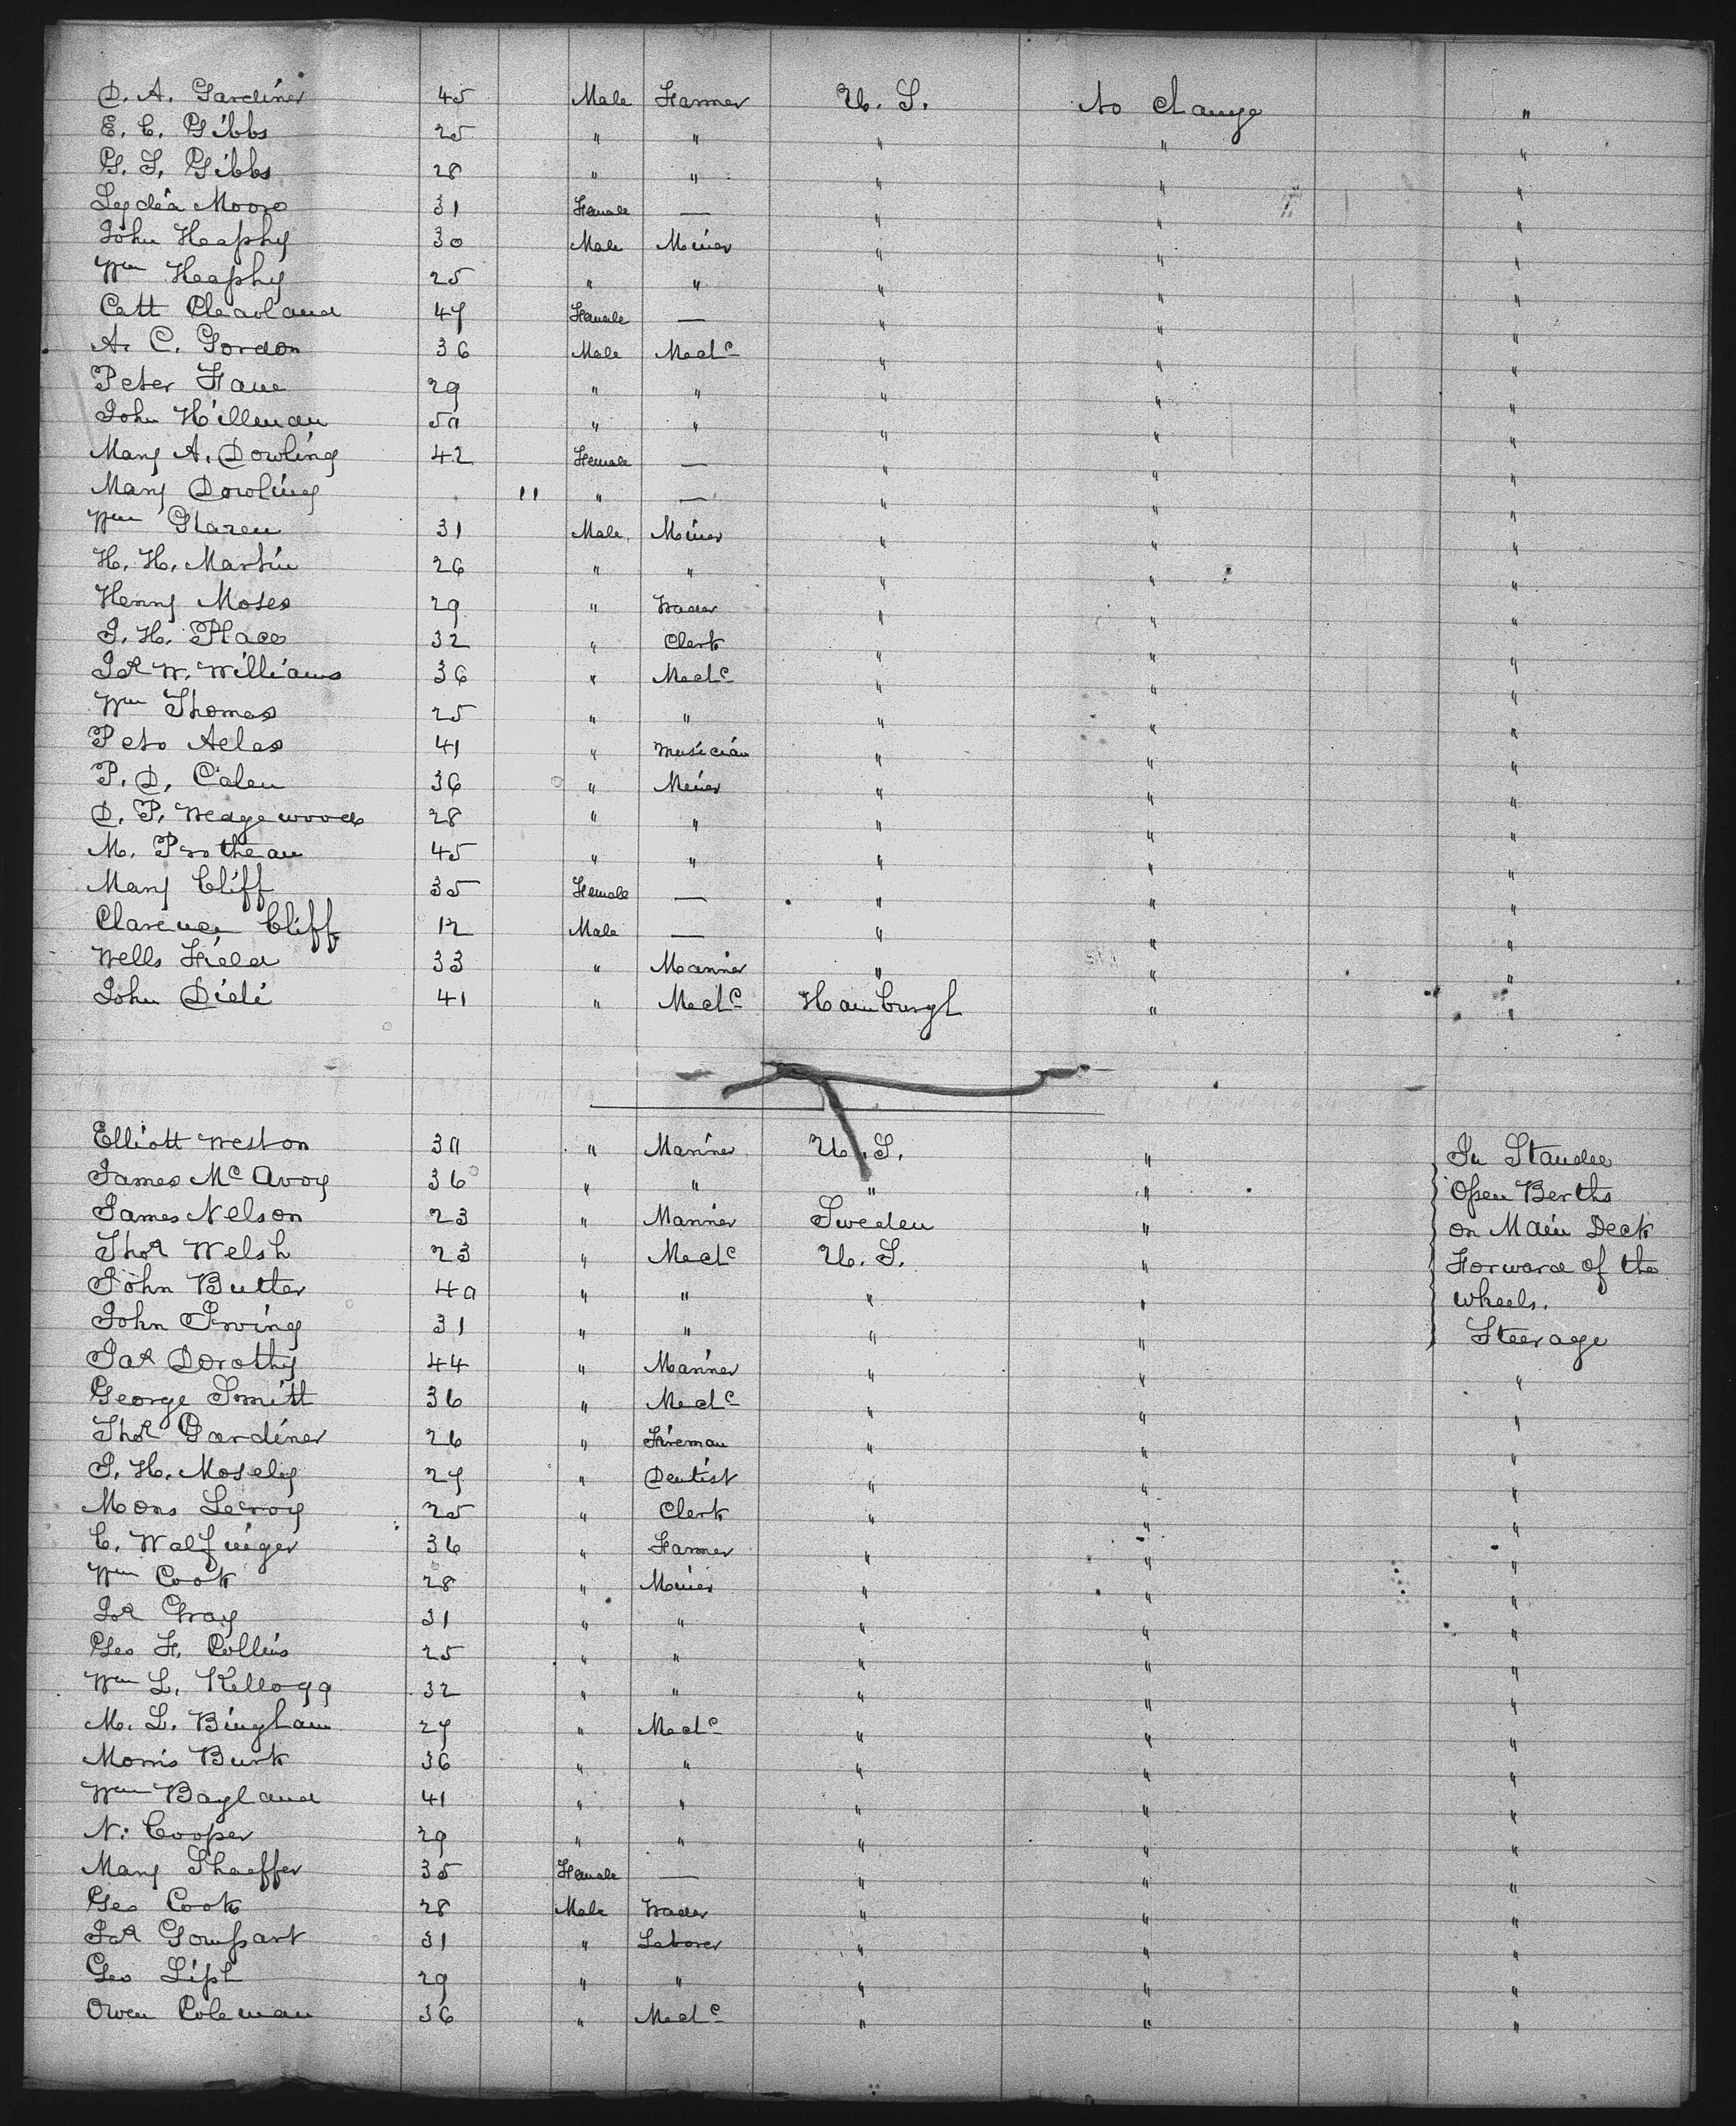 D. A. Gardiner 45 Male Farmer U. S. No change "
E. C. Gibbs 25 " " " " "
G. S. Gibbs 28 " " " " "
Lydia Moore 31 Female — " " "
John Heaphy 30 Male Miner " " "
Wm Heaphy 25 " " " " "
Catt Cleavland 47 Female — " " "
A. C. Gordon 36 Male Mechc " " "
Peter Fane 29 " " " " "
John Hillman 50 " " " " "
Mary A. Dowling 42 Female — " " "
Mary Dowling 11 " — " " "
Wm Glazen 31 Male Miner " " "
H. H. Martin 26 " " " " "
Henry Moses 29 " Trader " " "
J. H. Place 32 " Clerk " " "
Js W. Williams 36 " Mechc " " "
Wm Thomas 25 " " " " "
Peto Aelas 41 " Musician " " "
P. D. Calen 36 " Miner " " "
D. P. Wedgewoods 28 " " " " "
M. Protheau 45 " " " " "
Mary Cliff 35 Female — " " "
Clarence Cliff 12 Male — " " "
Wells Field 33 " Mariner " " "
John Dideè 41 " Mechc Hamburgh " "
Elliott Weston 30 " Mariner U. S. " In Standee
James McAvoy 36 " " " " Open Berths
James Nelson 23 " Mariner Sweden " on Main Deck
Thos Welsh 23 " Mechc U. S. " Forward of the
John Butter 40 " " " " wheels.
John Irving 31 " " " " Steerage
Jas Dorothy 44 " Mariner " " "
George Smitt 36 " Mechc " " "
Thos Gardiner 26 " Fireman " " "
J. H. Mosely 27 " Dentist " " "
Mons Leroy 25 " Clerk " " "
C. Walfinger 36 " Farmer " " "
Wm Cook 28 " Miner " " "
Js Gray 31 " " " " "
Geo F. Collins 25 " " " " "
Wm L. Kellogg 32 " " " " "
M. L. Bingham 27 " Mechc " " "
Morris Burk 36 " " " " "
Wm Bayland 41 " " " " "
N. Cooper 29 " " " " "
Mary Shaeffer 35 Female — " " "
Geo Cook 28 Male Trader " " "
Js Gompart 31 " Laborer " " "
Geo Lipt 29 " " " " "
Owen Coleman 36 " Mechc " " "